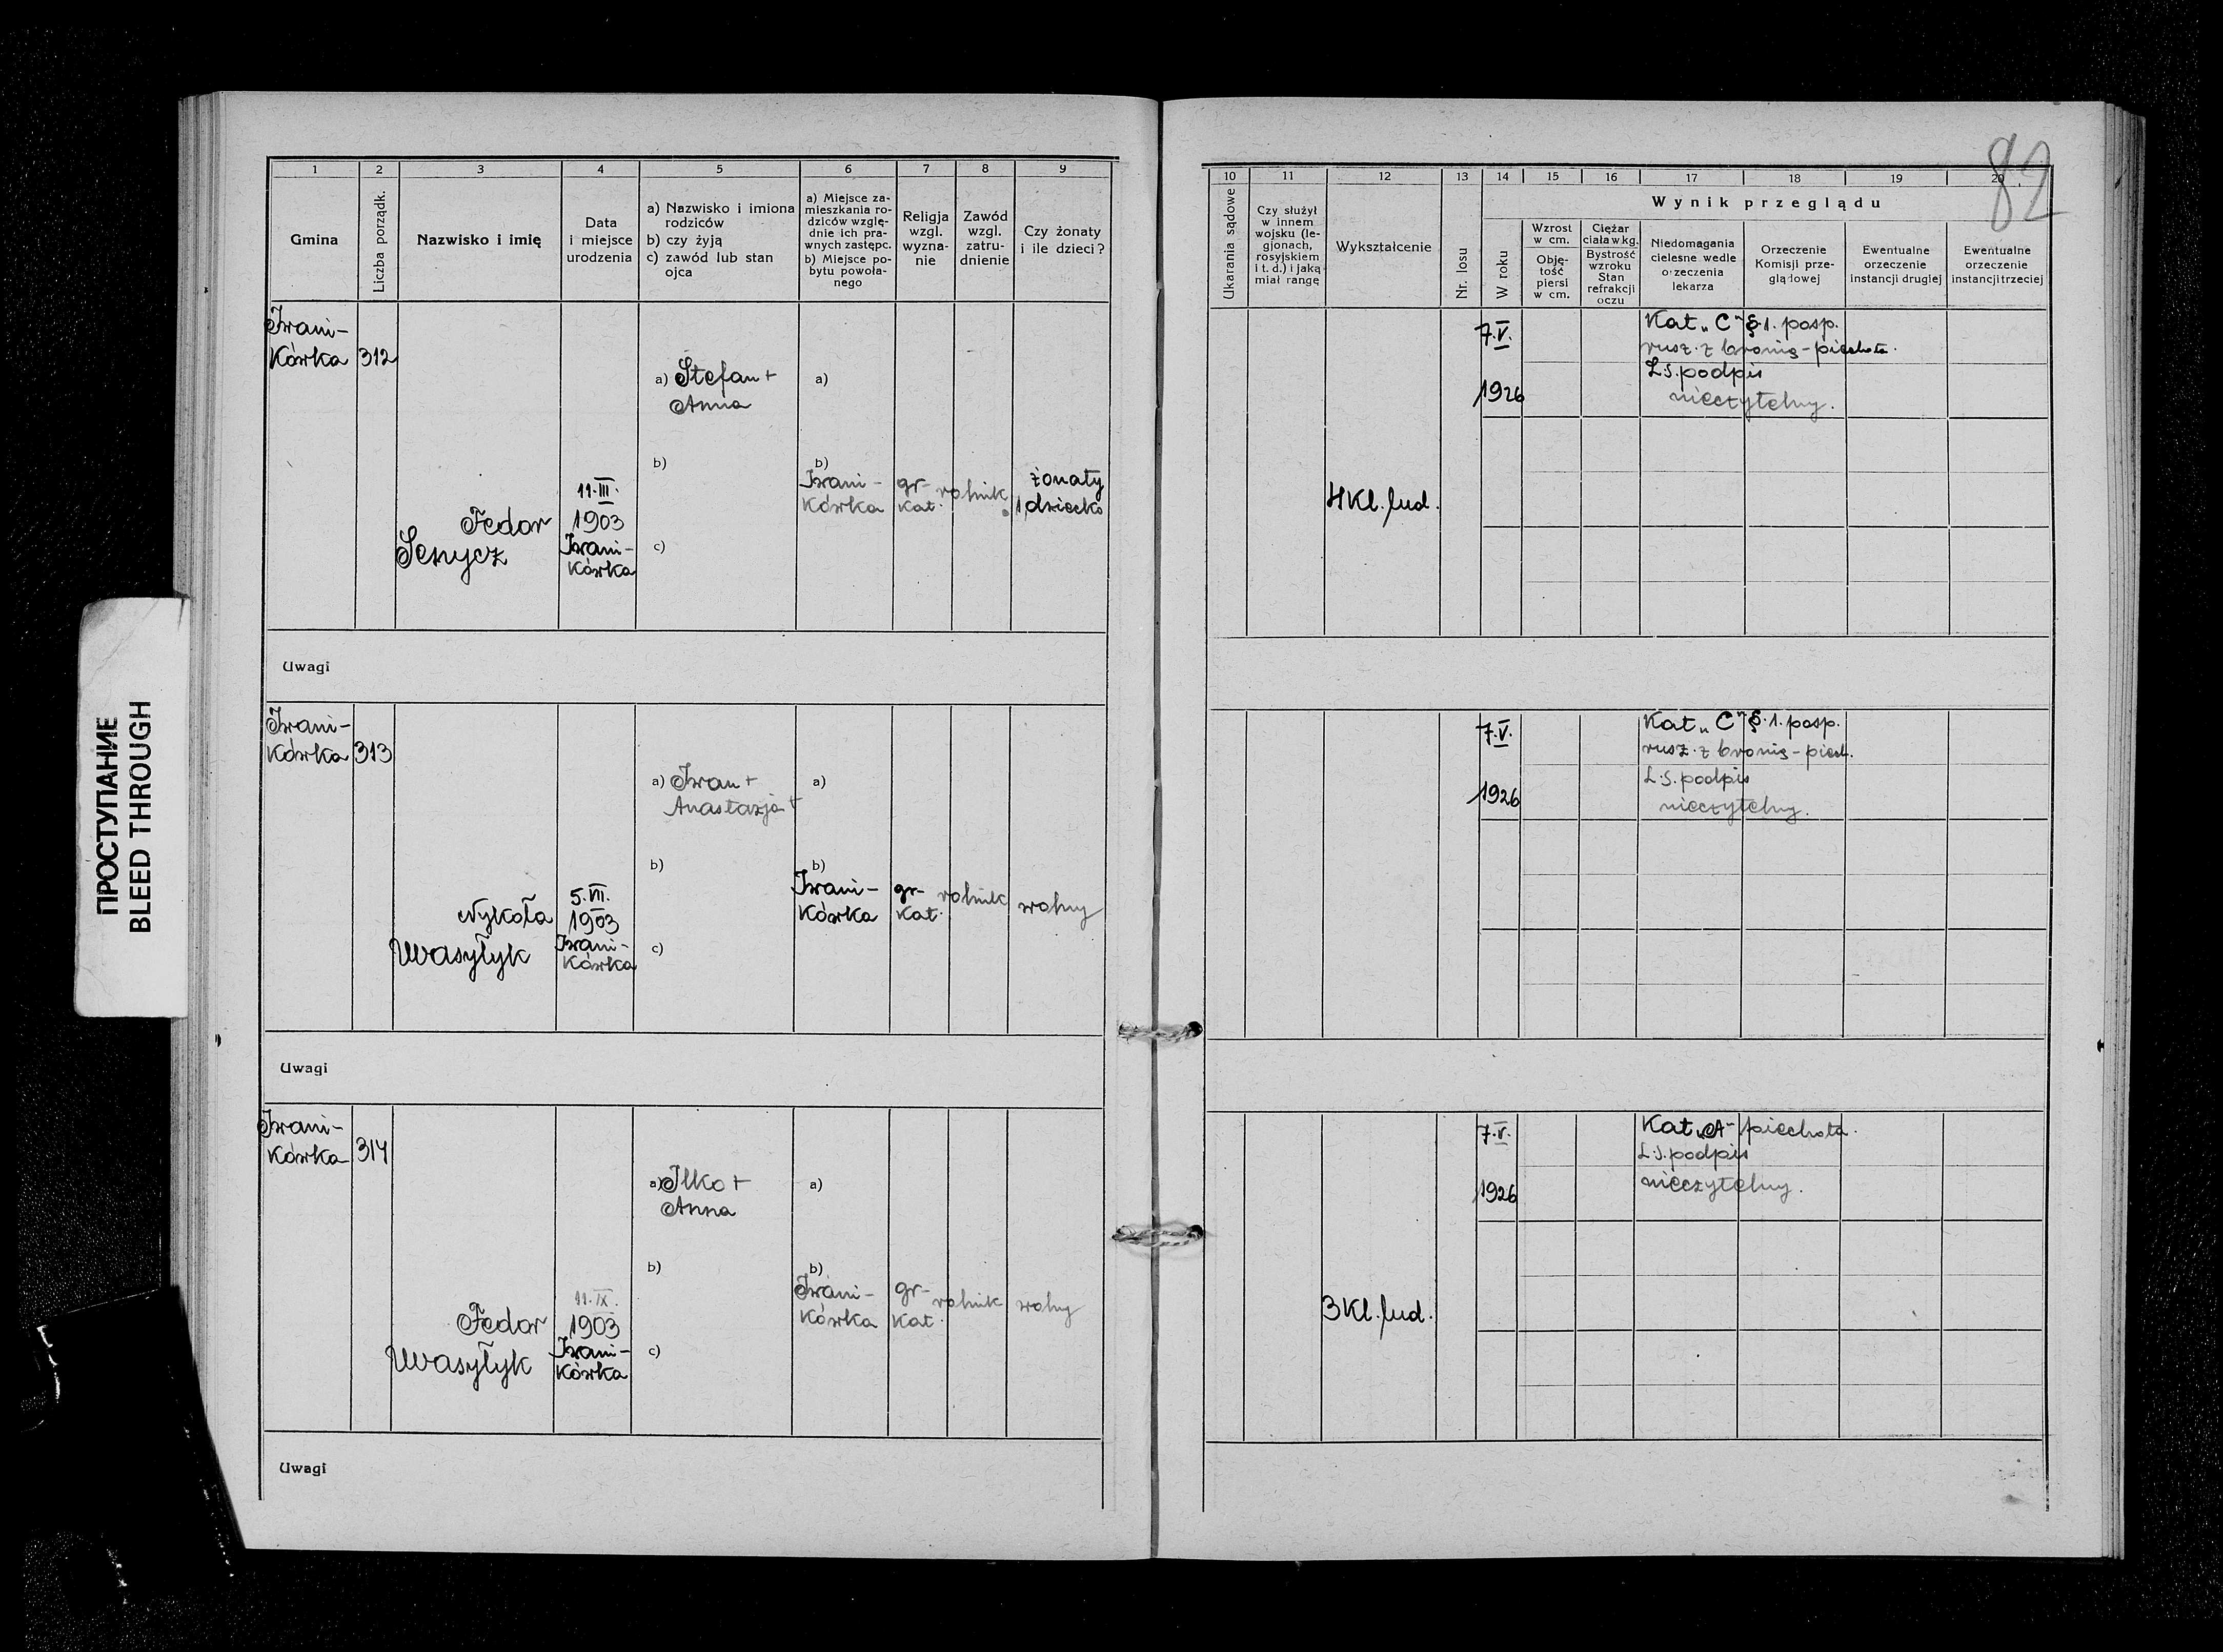 82
1 2 3 4 5 6 7 8 9
Gmina
Liczba porządk.
Nazwisko i imię
Data
i miejsce
urodzenia
a) Nazwisko i imiona
rodziców
b) czy żyją
c) zawód lub stan
ojca
a) Miejsce za-
mieszkania ro-
dziców wzglę-
dnie ich pra-
wnych zastępc.
b) Miejsce po-
bytu powoła-
nego
Religja
wzgl.
wyzna-
nie
Zawód
wzgl.
zatru-
dnienie
Czy żonaty
i ile dzieci?
10 11 12 13 14 15 16 17 18 19 20
Ukarania sądowe
Czy służył
w innem
wojsku (le-
gjonach,
rosyjskiem
i t. d.) i jaką
miał rangę
Wykształcenie
Nr. losu
Wynik przeglądu
W roku
Wzrost
w cm.
Obję-
tość
piersi
w cm.
Ciężar
ciała w kg.
Bystrość
wzroku
Stan
refrakcji
oczu
Niedomagania
cielesne wedle
orzeczenia
lekarza
Orzeczenie
Komisji prze-
glądowej
Ewentualne
orzeczenie
instancji drugiej
Ewentualne
orzeczenie
instancji trzeciej
Iwani-
Kówka 312
Fedor
Senycz
11.III.
1903
Iwani-
Kówka
a) Stefan +
Anna
b)
c)
a)
b)
Iwani-
Kówka
gr-
kat.
rolnik
żonaty
1 dziecko
4 Kl. lud.
7.V.
1926
Kat „C" §.1. posp.
rusz. z bronią - piechota.
L.S. podpis
nieczytelny.
Uwagi
Iwani-
Kówka 313
Nykoła
Wasyłyk
5.VII.
1903
Iwani-
Kówka
a) Iwan +
Anastazja +
b)
c)
a)
b)
Iwani-
Kówka
gr-
kat.
rolnik
wolny
7.V.
1926
Kat „C" §.1. posp.
rusz. z bronią - piech.
L.S. podpis
nieczytelny.
Uwagi
Iwani-
Kówka 314
Fedor
Wasyłyk
11.IX.
1903
Iwani-
Kówka
a) Ilko +
Anna
b)
c)
a)
b)
Iwani-
Kówka
gr-
kat.
rolnik
wolny
3 Kl. lud.
7.V.
1926
Kat „A" piechota.
L.S. podpis
nieczytelny.
Uwagi
ПРОСТУПАНИЕ
BLEED THROUGH